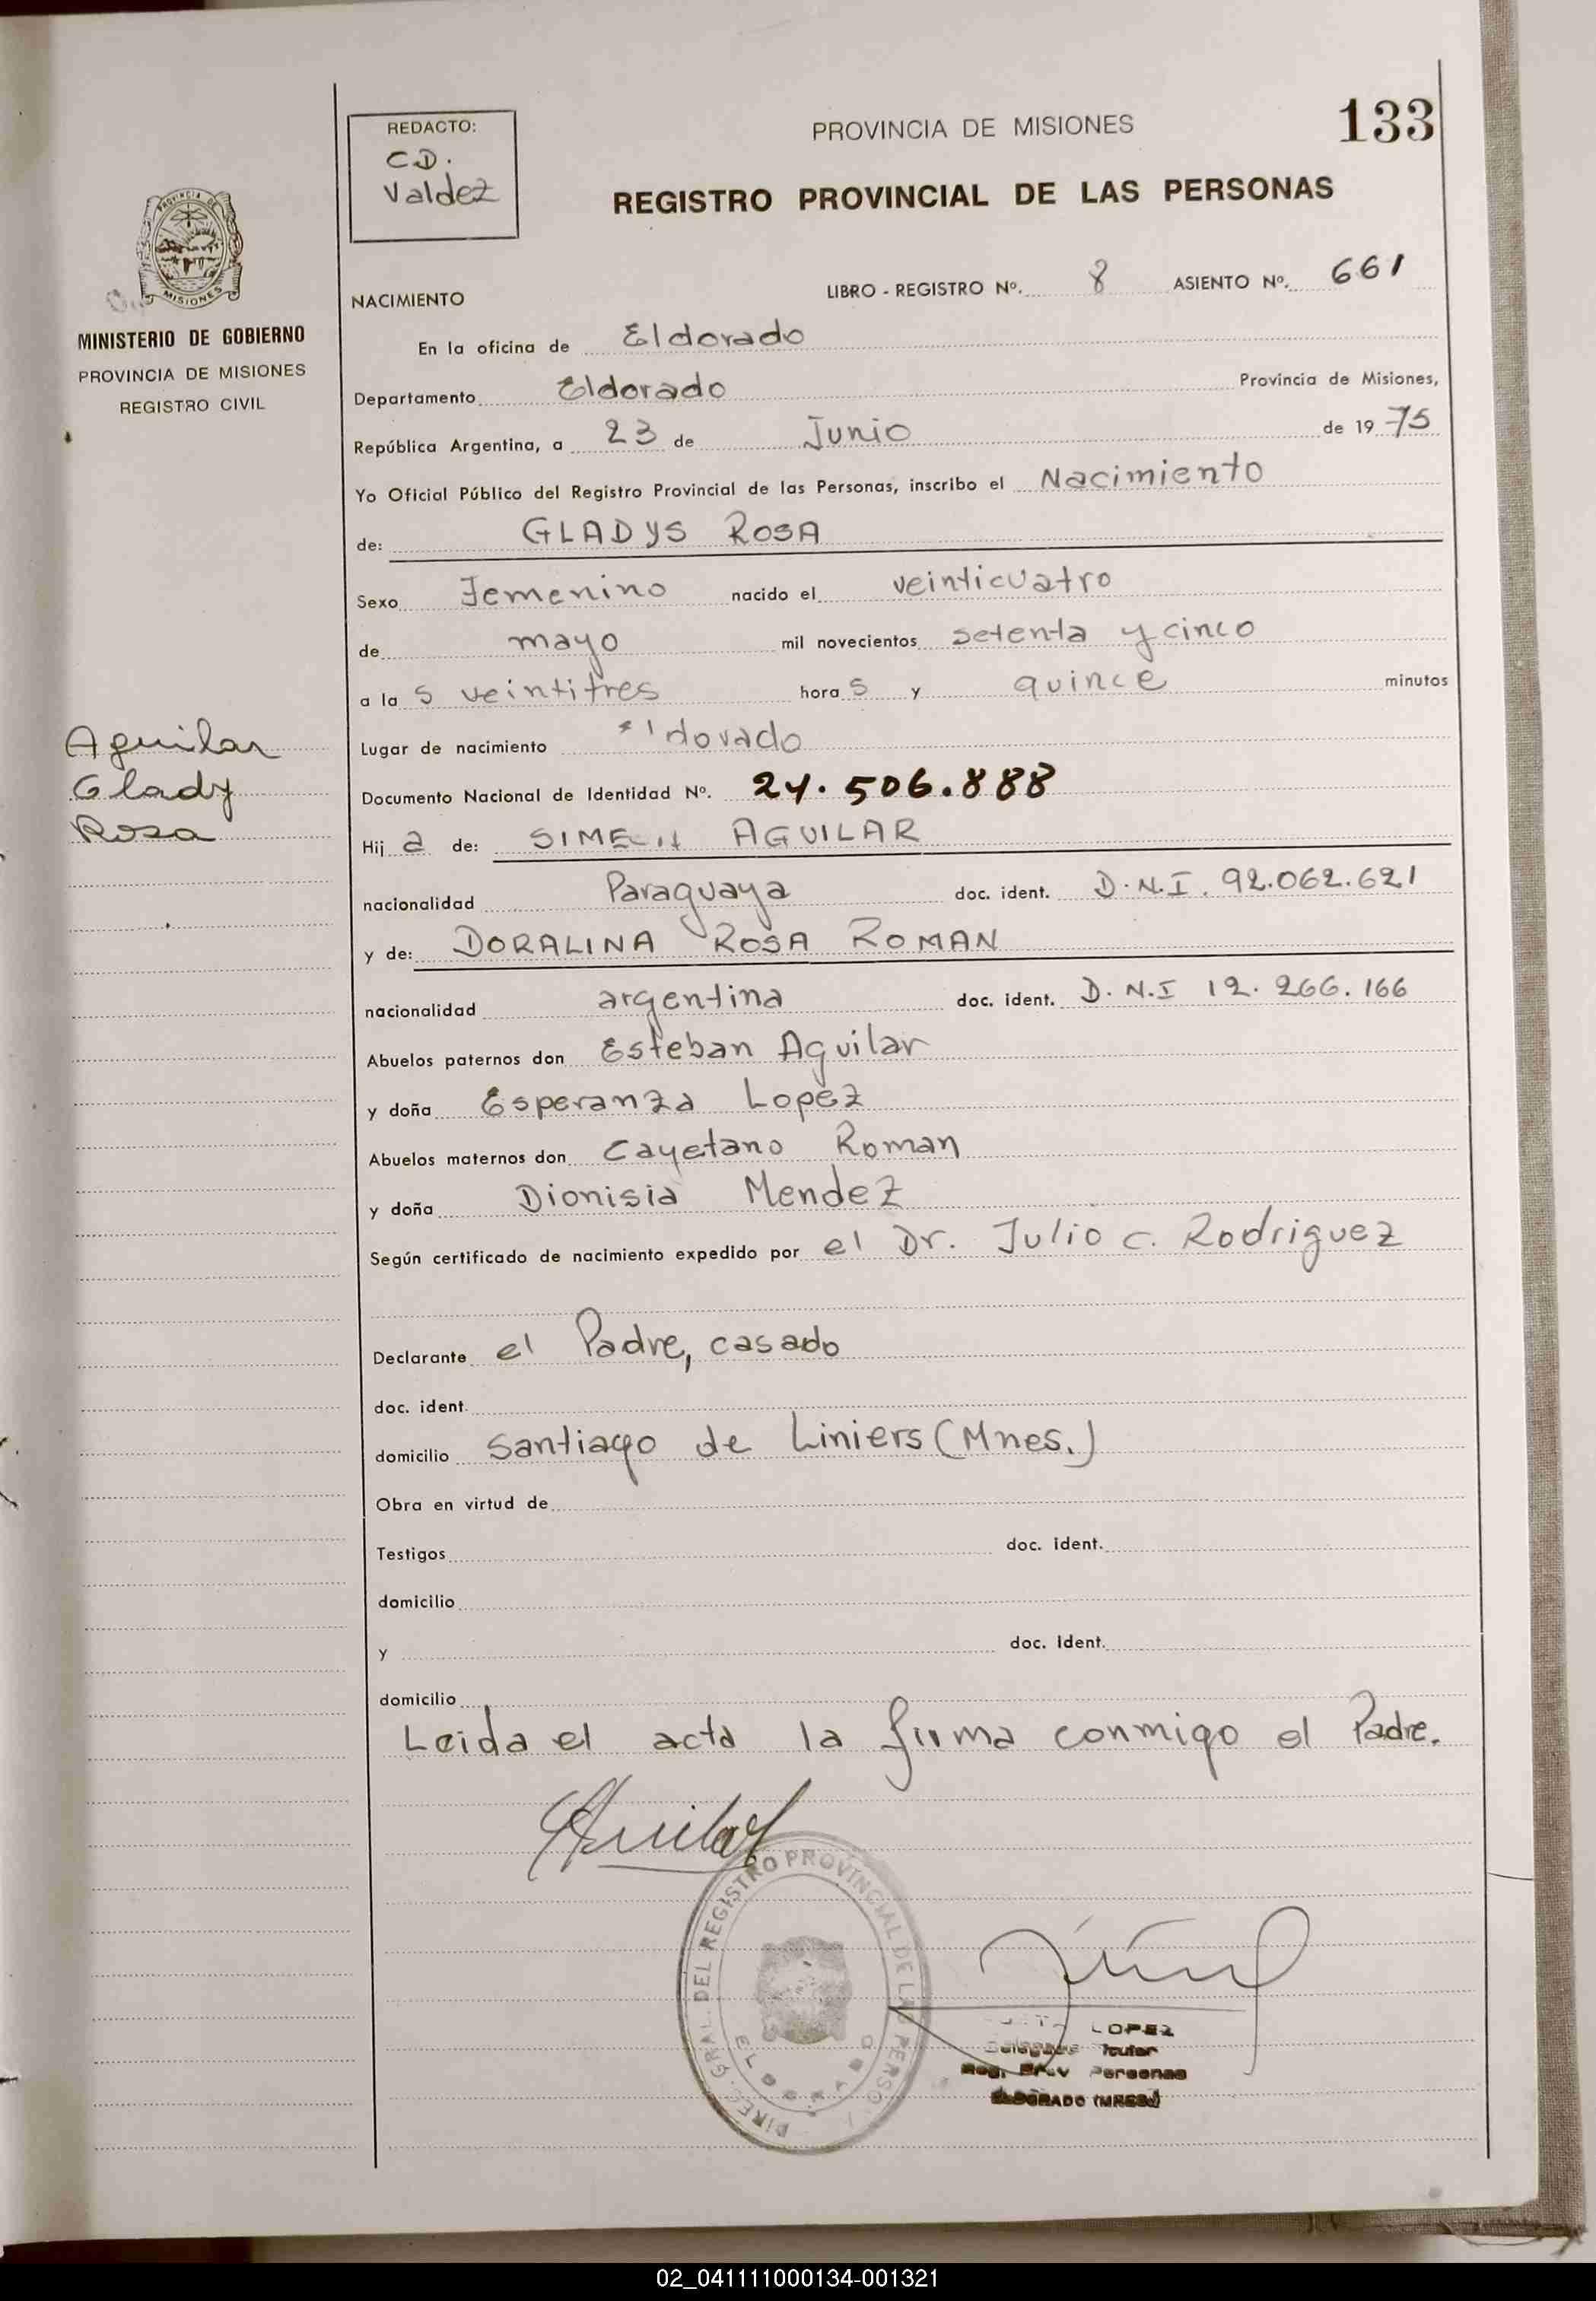 133
REDACTO:
C.D.
Valdez
PROVINCIA DE MISIONES
REGISTRO PROVINCIAL DE LAS PERSONAS
PROVINCIA DE
MISIONES
MINISTERIO DE GOBIERNO
PROVINCIA DE MISIONES
REGISTRO CIVIL
NACIMIENTO
LIBRO - REGISTRO Nº. 8 ASIENTO Nº. 661
En la oficina de Eldorado
Departamento Eldorado Provincia de Misiones,
República Argentina, a 23 de Junio de 19 75
Yo Oficial Público del Registro Provincial de las Personas, inscribo el Nacimiento
de: GLADYS ROSA
Sexo Femenino nacido el veinticuatro
de mayo mil novecientos setenta y cinco
a la s veintitres hora s y quince minutos
Aguilar
Glady
Rosa
Lugar de nacimiento Eldorado
Documento Nacional de Identidad Nº. 24.506.888
Hij a de: AGUILAR
nacionalidad Paraguaya doc. ident. D.N.I. 92.062.621
y de: DORALINA ROSA ROMAN
nacionalidad argentina doc. ident. D.N.I 12.266.166
Abuelos paternos don Esteban Aguilar
y doña Esperanza Lopez
Abuelos maternos don Cayetano Roman
y doña Dionisia Mendez
Según certificado de nacimiento expedido por el Dr. Julio C. Rodriguez
Declarante el Padre, casado
doc. ident.
domicilio Santiago de Liniers (Mnes.)
Obra en virtud de
Testigos doc. ident.
domicilio
y doc. ident.
domicilio
Leida el acta la firma conmigo el Padre.
DIREC. GRAL. DEL REGISTRO PROVINCIAL DE LAS PERSO
ELDORADO
LOPEZ
Personas
ELDORADO (MNES.)
02_041111000134-001321